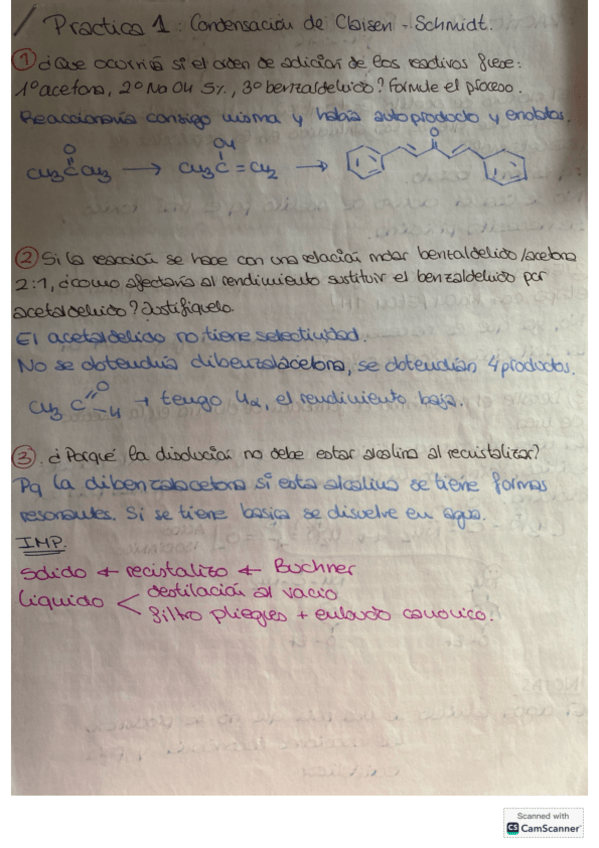 Practica 1: Condensación de Claisen - Schmidt.
① ¿Que ocurriría si el orden de adición de los reactivos fuese:
1º acetona, 2º NaOH 5%, 3º benzaldehido? Formule el proceso.
Reaccionaría consigo misma y habría autoproducto y enolatos.
O
OH
O
CH3 C CH3 → CH3 C = CH2 →
② Si la reacción se hace con una relación molar bentaldehido/acetona
2:1, ¿cómo afectaría al rendimiento sustituir el benzaldehido por
acetaldehido? Justifiquelo.
El acetaldehido no tiene selectividad.
No se obtendría dibenzalacetona, se obtendrían 4 productos.
CH3 C O H → tengo Hα, el rendimiento baja.
③ ¿Porqué la disolución no debe estar alcalina al recristalizar?
Pq la dibenzalacetona si esta alcalina se tiene formas
resonantes. Si se tiene basica se disuelve en agua.
IMP.
Sólido + recistalizo + Buchner
Líquido < destilación al vacío
filtro pliegues + embudo cónico.
Scanned with
CS CamScanner